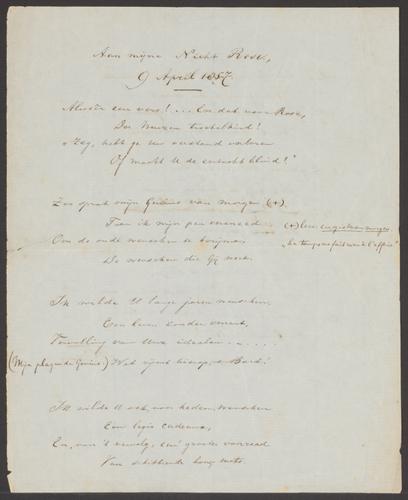 Aan mijne Nicht Rose,
9 April 1857.
Alweêr een vers! ... En dat voor Rose,
Der Muzen troetelkind!
"Zeg, hebt ge uw verstand verloren
Of maakt U de eendacht blind?"
Zoo sprak mijn Genius van morgen (+)
Toen ik mijn pen
Om de oude wenschen te
De wenschen die Gij
(+) lees eergisteren morgen
"le temps ne fait rien à l'affaire"
Ik wilde U lange jaren wenschen,
Een leven zonder
Vervulling van Uwe idealen .....
(Mijn plagende Genius.) Wat rijmt
Ik wilde U ook, voor heden, wenschen
Een legio cadeaux,
En, voor 't vervolg, een' grooten voorraad
Van schitterende bons mots.